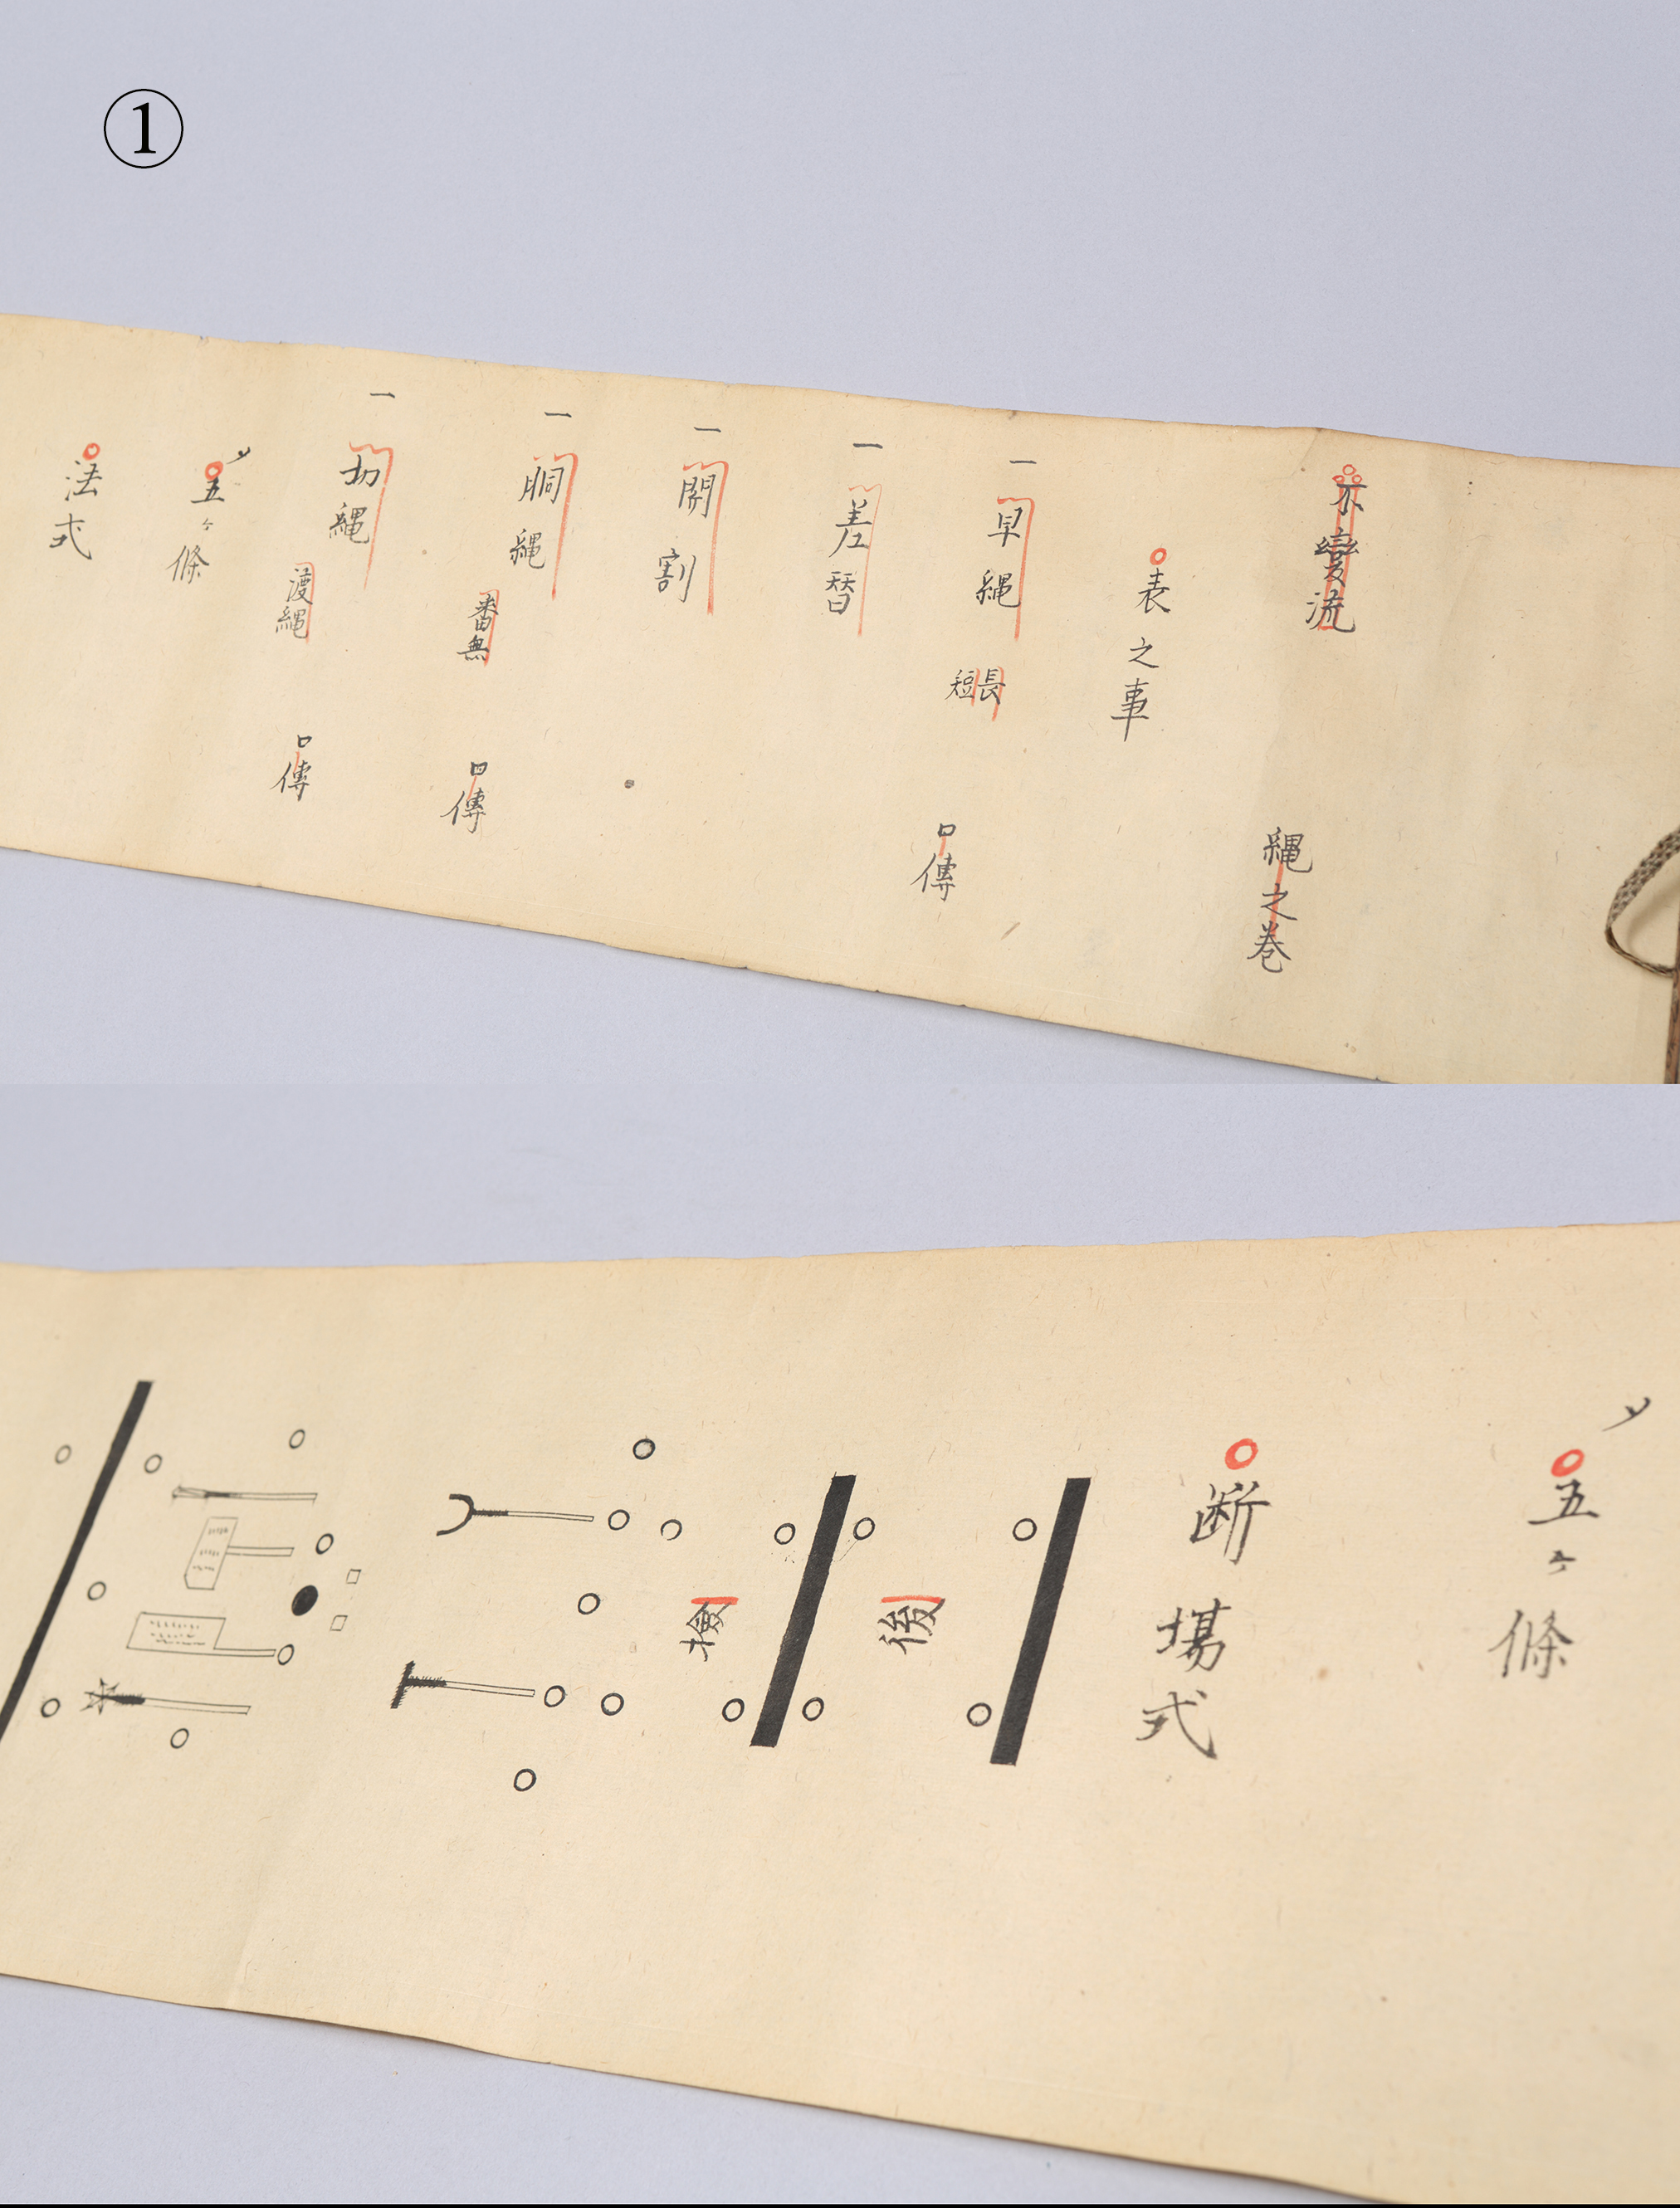 ①
不變流
縄之巻
表之事
一 早縄 長短 口傳
一 差替
一 開割
一 胴縄 番無 口傳
一 切縄 渡縄 口傳
〆五ヶ條
法式
〆五ヶ條
断場式
後
検